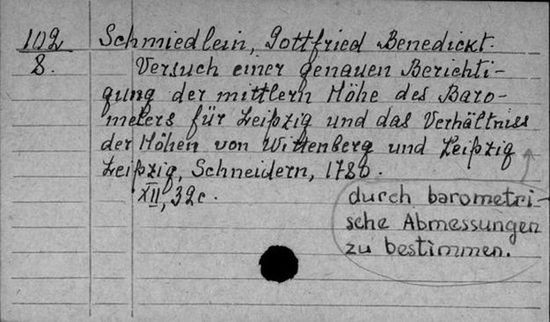 102
8.
Schmiedlein, Gottfried Benedickt.
Versuch einer genauen Berichti-
gung der mittlern Höhe des Baro-
meters für Leipzig und das Verhältniss
der Höhen von Wittenberg und Leipzig
Leipzig, Schneidern, 1780.
XII, 32c.
durch barometri-
sche Abmessungen
zu bestimmen.